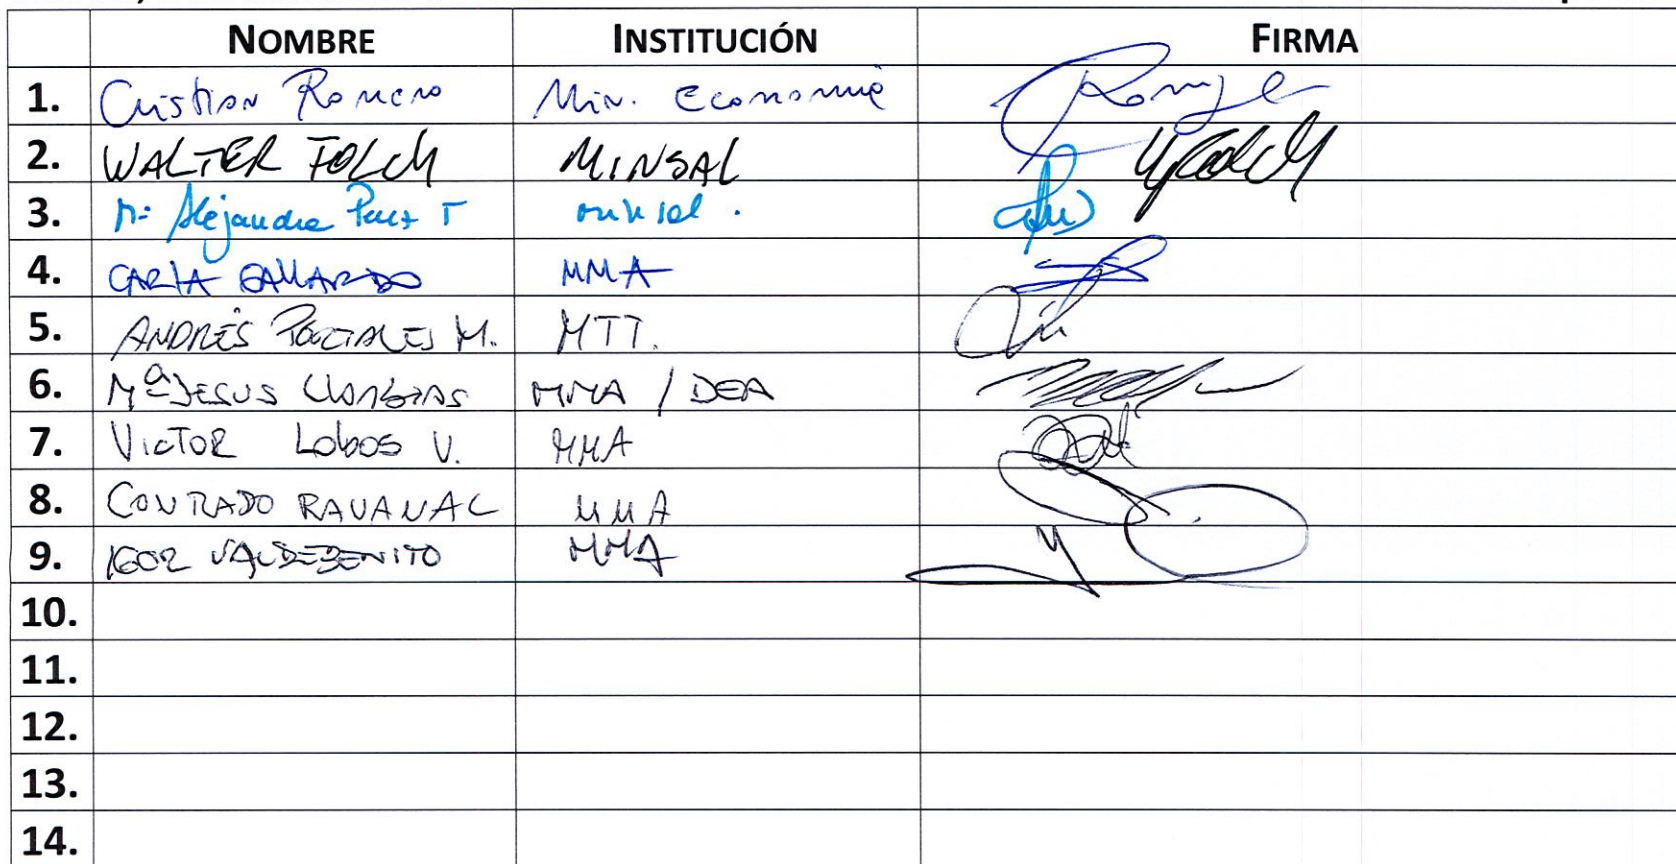 NOMBRE INSTITUCIÓN FIRMA
1. Cristian Romero Min. Economía
2. WALTER FOLCH MINSAL
3. Mª Alejandra T minsal.
4. CARLA GALLARDO MMA
5. ANDRÉS M. MTT.
6. Mª JESUS MMA / DEA
7. VICTOR Lobos V. MMA
8. CONRADO RAVANAL MMA
9. IGOR VALDEBENITO MMA
10.
11.
12.
13.
14.